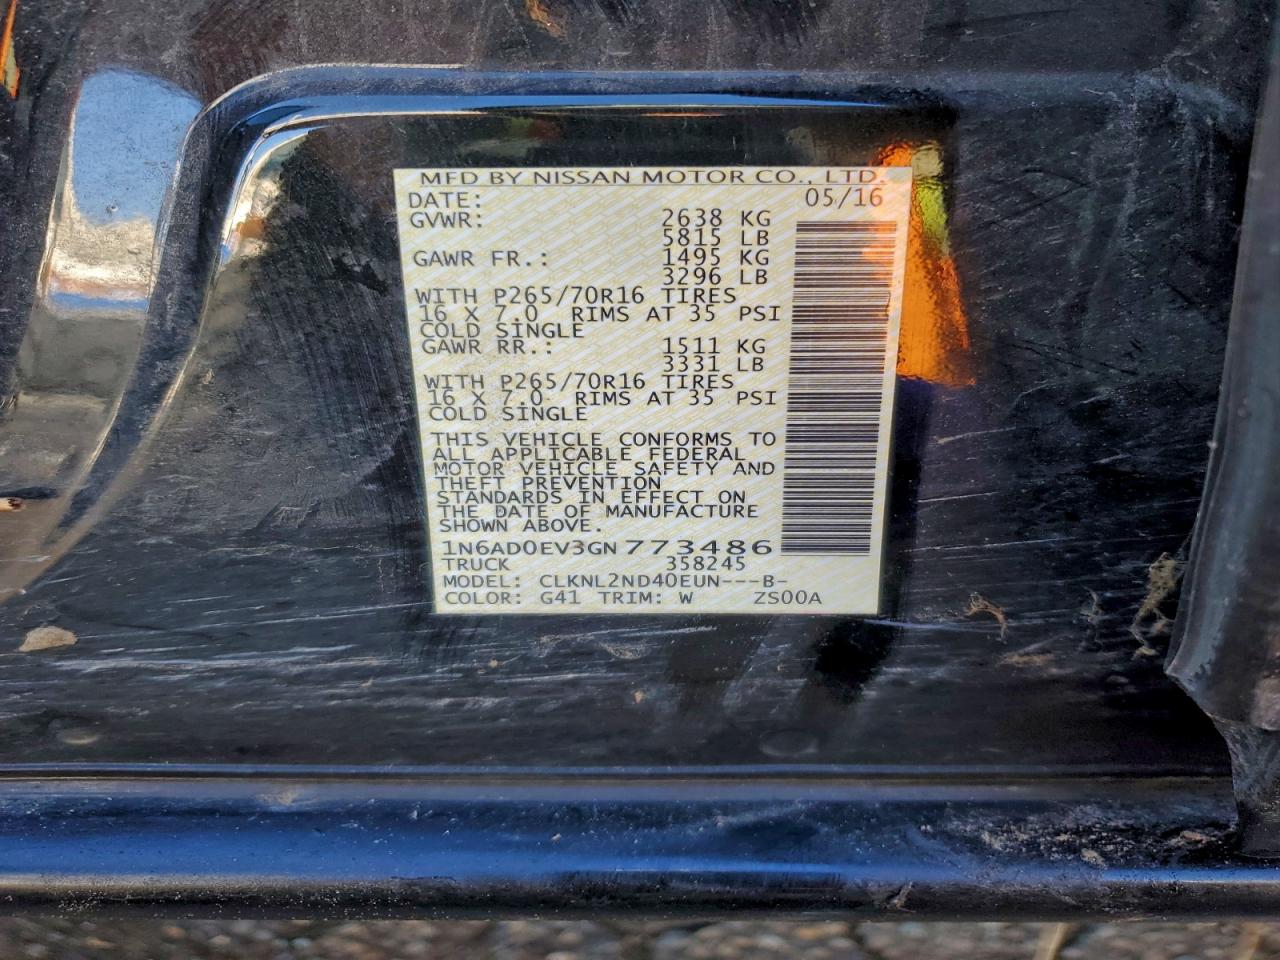 MFD BY NISSAN MOTOR CO., LTD.
DATE: 05/16
GVWR: 2638 KG
5815 LB
GAWR FR.: 1495 KG
3296 LB
WITH P265/70R16 TIRES
16 X 7.0 RIMS AT 35 PSI
COLD SINGLE
GAWR RR.: 1511 KG
3331 LB
WITH P265/70R16 TIRES
16 X 7.0 RIMS AT 35 PSI
COLD SINGLE
THIS VEHICLE CONFORMS TO
ALL APPLICABLE FEDERAL
MOTOR VEHICLE SAFETY AND
THEFT PREVENTION
STANDARDS IN EFFECT ON
THE DATE OF MANUFACTURE
SHOWN ABOVE.
1N6AD0EV3GN773486
TRUCK 358245
MODEL: CLKNL2ND40EUN---B-
COLOR: G41 TRIM: W ZS00A